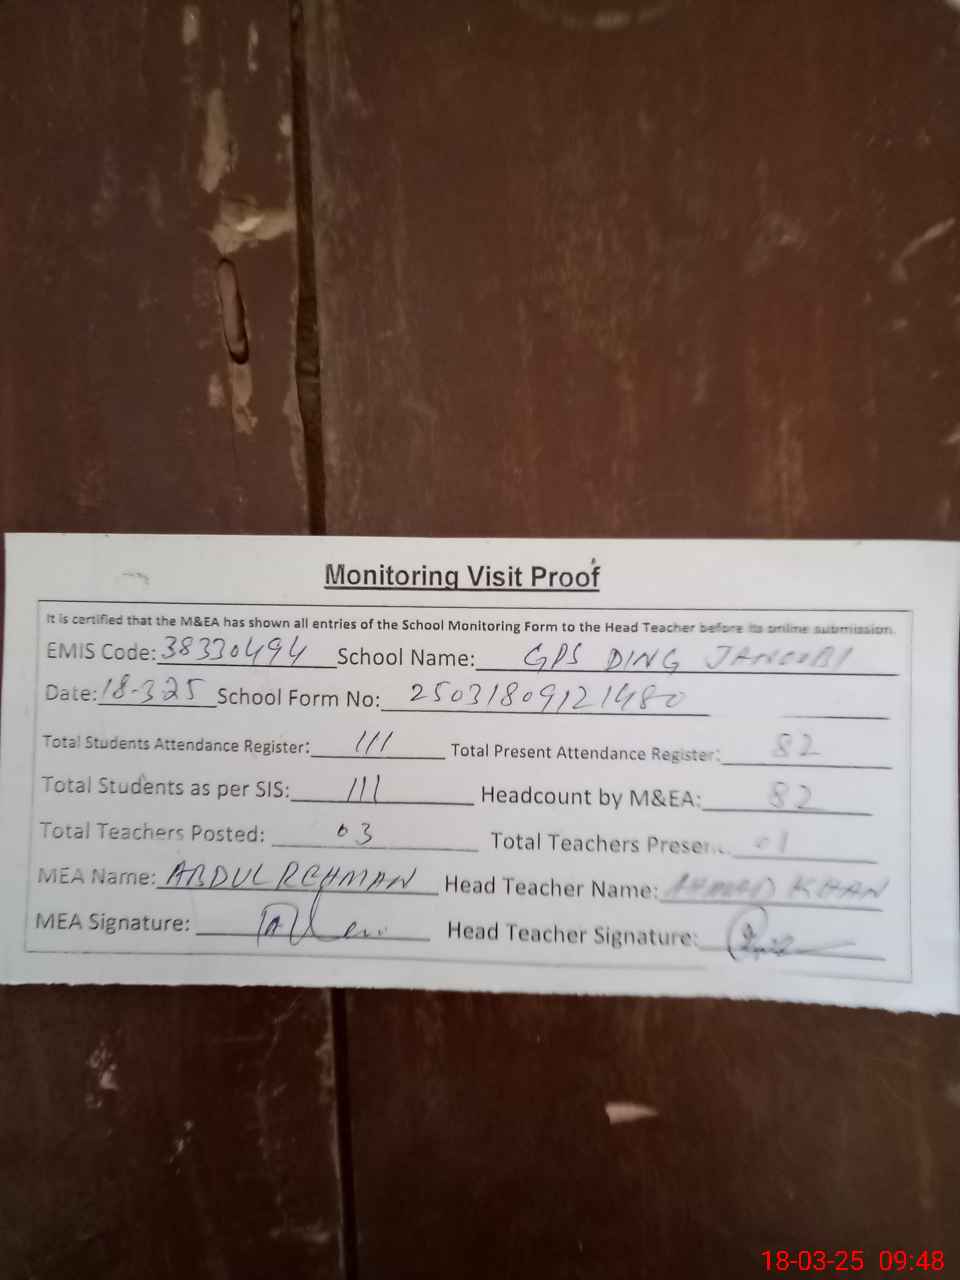 Monitoring Visit Proof
It is certified that the M&EA has shown all entries of the School Monitoring Form to the Head Teacher before its online submission.
EMIS Code: 38330494 School Name: GPS DING
Date: 18-3-25 School Form No: 25031809121480
Total Students Attendance Register: 111 Total Present Attendance Register: 82
Total Students as per SIS: 111 Headcount by M&EA: 82
Total Teachers Posted: 03 Total Teachers Present: 01
MEA Name: ABDUL REHMAN Head Teacher Name: AHMAD KHAN
MEA Signature: Head Teacher Signature:
18-03-25 09:48